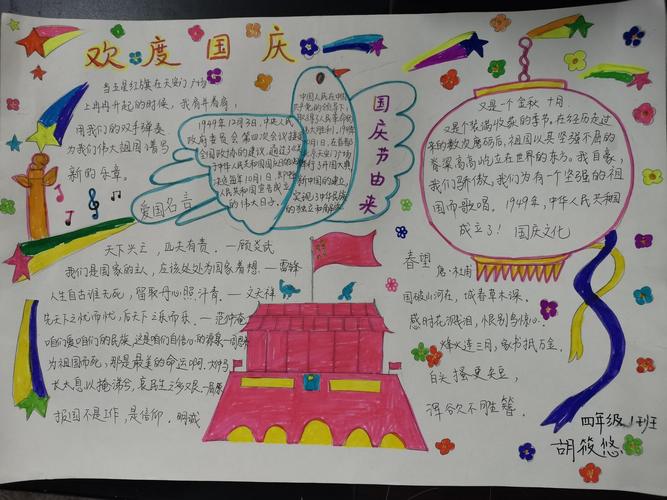 欢度国庆
当五星红旗在天安门广场
上冉冉升起的时候，我
用我们的双手弹奏
为我们伟大祖国谱写
新的乐章
1949年12月3日，中央人民
政府委员会第四次会议接受
全国政协的建议，通过了
中华人民共和国国
决定每年10月1日
人民共和国宣告成立
的伟大日子。
中国人民在中国
共产党的领导下，
取得了人民革命
伟大胜利，1949年
10月1日，在首都
北京天安门广场
举行了开国大典
新中国的建立，
实现了中华民族
的独立和解放
国庆节由来
又是一个金秋十月
又是个装满收获的季节。在经历走过
来的数次磨砺后，祖国以其坚强不屈的
脊梁高高屹立在世界的东方。我自豪，
我们骄傲，我们为有一个坚强的祖
国而歌唱。1949年，中华人民共和国
成立了！国庆文化
爱国名言
天下兴亡，匹夫有责。—顾炎武
我们是国家的主人，应该处处为国家着想。—雷锋
人生自古谁无死，留取丹心照汗青。—文天祥
先天下之忧而忧，后天下之乐而乐。—范仲淹
为祖国而死，那是最美的命运啊。大仲马
长太息以掩涕兮，哀民生之多艰—屈原
报国不是工作，是信仰。
春望
唐·杜甫
国破山河在，城春草木深。
感时花溅泪，恨别鸟惊心。
烽火连三月，家书抵万金。
白头搔更短，
浑欲不胜簪。
四年级1班
胡筱悠